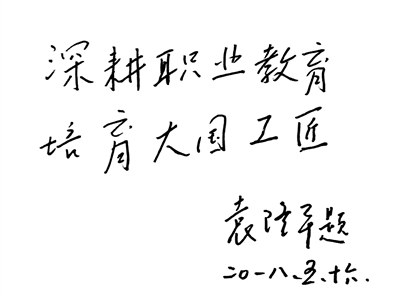 深耕职业教育
培育大国工匠
袁隆平题
二〇一八、五、十六.